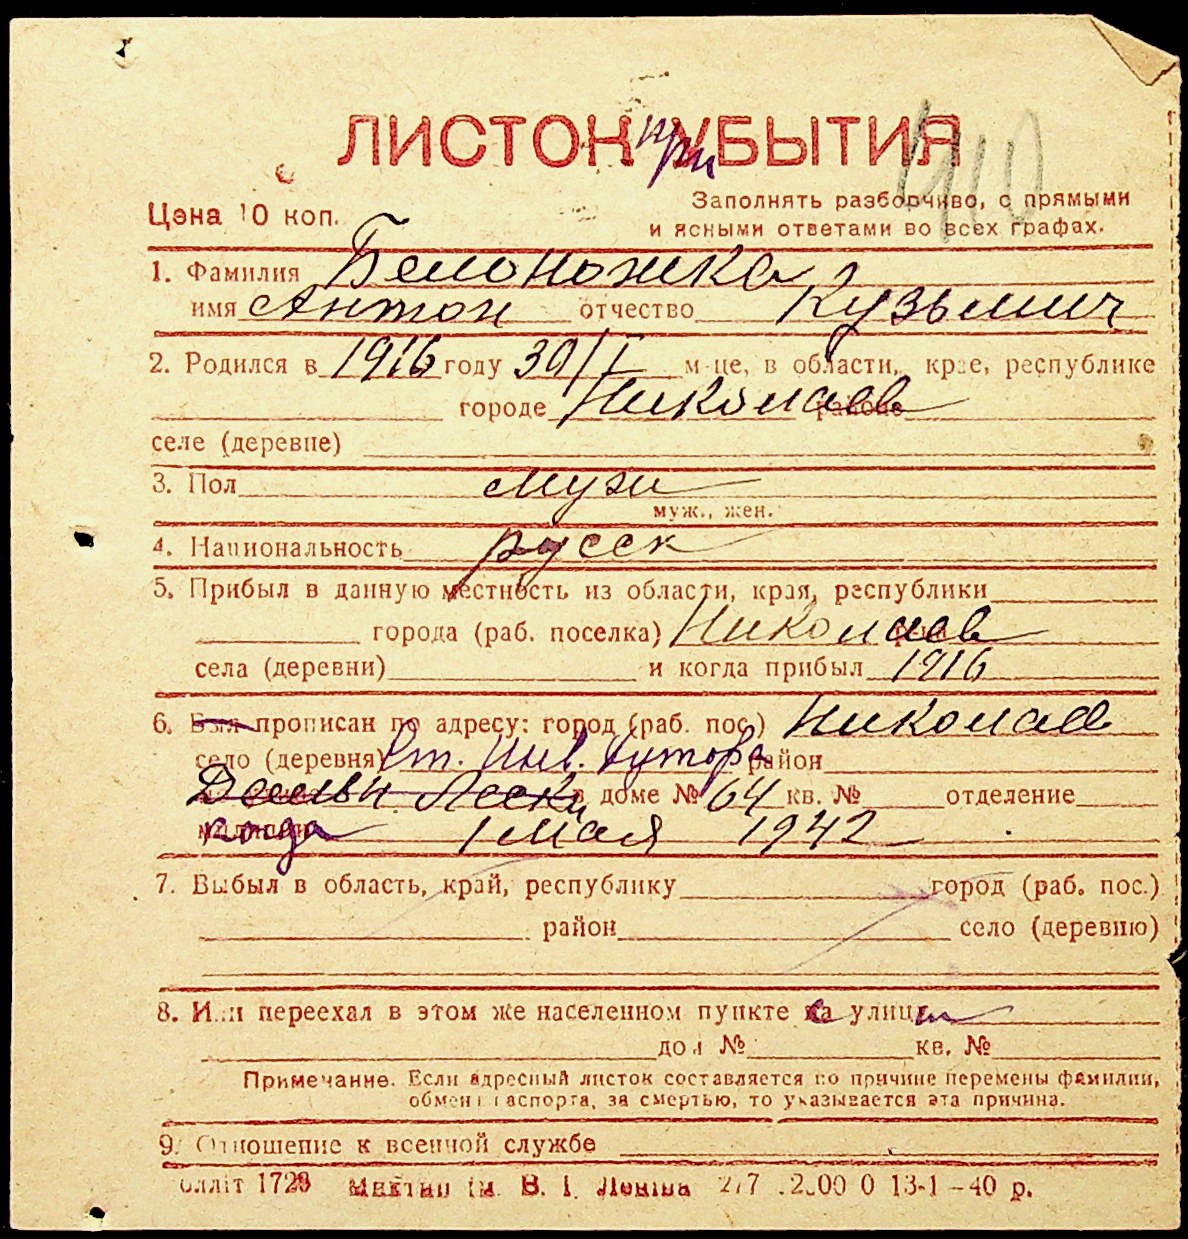 ЛИСТОК при УБЫТИЯ
910
Цена 10 коп.
Заполнять разборчиво, с прямыми
и ясными ответами во всех графах.
1. Фамилия Белоножка
имя Антон отчество Кузьмич
2. Родился в 1916 году 30/I м-це, в области, крае, республике
городе Николаев районе
селе (деревне)
3. Пол муж
муж., жен.
4. Национальность русск
5. Прибыл в данную местность из области, края, республики
города (раб. поселка) Николаев
села (деревни) и когда прибыл 1916
6. Был прописан по адресу: город (раб. пос.) Николаев
село (деревня) Ст. хутора район
Пески в доме № 64 кв. № отделение
милиции когда 1 мая 1942
7. Выбыл в область, край, республику город (раб. пос.)
район село (деревню)
8. Или переехал в этом же населенном пункте с улицы
дом № кв. №
Примечание. Если адресный листок составляется по причине перемены фамилии,
обмена паспорта, за смертью, то указывается эта причина.
9. Отношение к военной службе
облліт 1728 ім. В. І. Леніна 13-1-40 р.